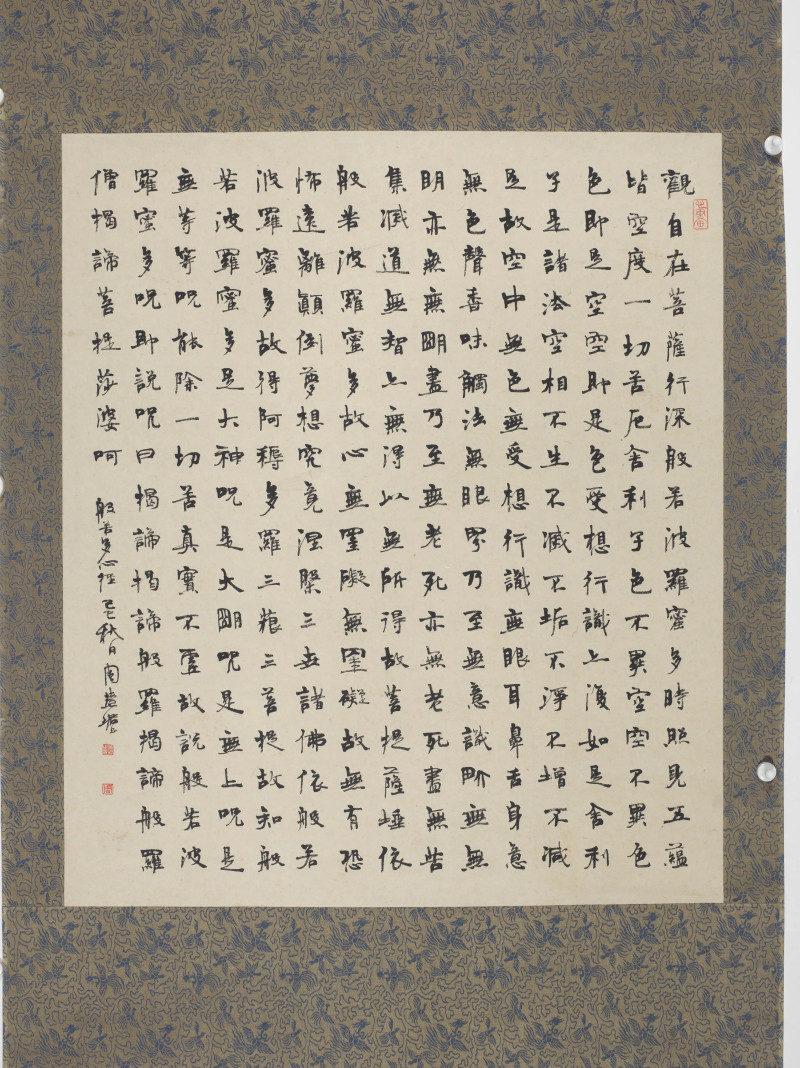 觀自在菩薩行深般若波羅蜜多時照見五蘊
皆空度一切苦厄舍利子色不異空空不異色
色即是空空即是色受想行識亦復如是舍利
子是諸法空相不生不滅不垢不淨不增不減
是故空中無色無受想行識無眼耳鼻舌身意
無色聲香味觸法無眼界乃至無意識界無無
明亦無無明盡乃至無老死亦無老死盡無苦
集滅道無智亦無得以無所得故菩提薩埵依
般若波羅蜜多故心無罣礙無罣礙故無有恐
怖遠離顛倒夢想究竟涅槃三世諸佛依般若
波羅蜜多故得阿耨多羅三藐三菩提故知般
若波羅蜜多是大神呪是大明呪是無上呪是
無等等呪能除一切苦真實不虛故說般若波
羅蜜多呪即說呪曰揭諦揭諦般羅揭諦般羅
僧揭諦菩提莎婆呵
般若多心經 秋日周慧珺